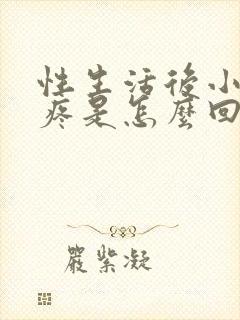 性生活後小
疼是怎麼回
嚴紫凝